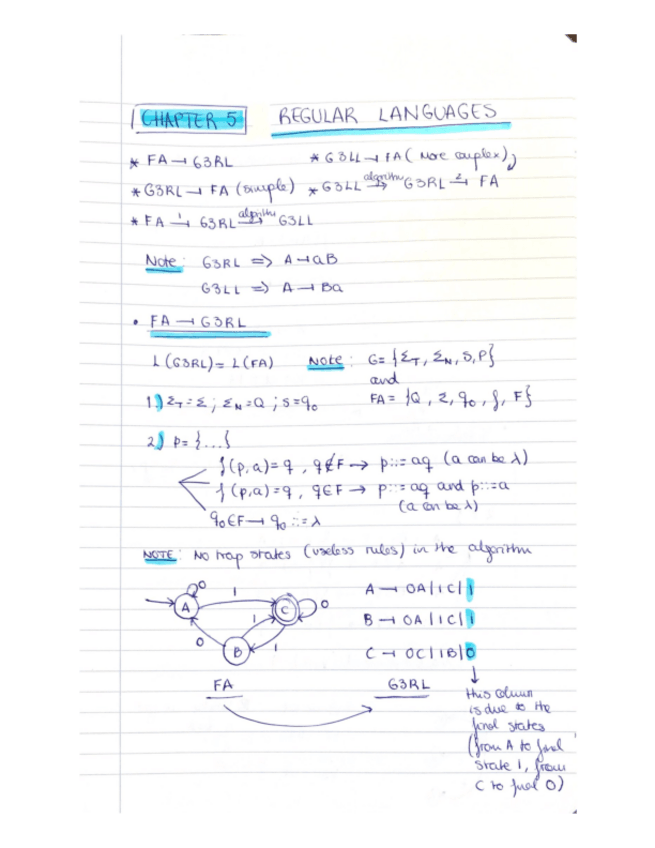 CHAPTER 5 REGULAR LANGUAGES
* FA → G3RL * G3LL → FA (More complex)
* G3RL → FA (simple) * G3LL algorithm→ G3RL 2→ FA
* FA 1→ G3RL algorithm→ G3LL
Note: G3RL => A → aB
G3LL => A → Ba
• FA → G3RL
L(G3RL) = L(FA) Note: G={Σ_T, Σ_N, S, P}
and
1) Σ_T = Σ ; Σ_N = Q ; S = q₀ FA = {Q, Σ, q₀, f, F}
2) P = {...{
f(p,a) = q , q∉F → p::= aq (a can be λ)
f(p,a) = q , q∈F → p::= aq and p::=a
(a can be λ)
q₀∈F → q₀ ::= λ
NOTE: No trap states (useless rules) in the algorithm
0
A 1 C 0
1
0 B 1
A → 0A|1C|1
B → 0A|1C|1
C → 0C|1B|0
FA G3RL
this column
is due to the
final states
(from A to final
state 1, from
C to final 0)